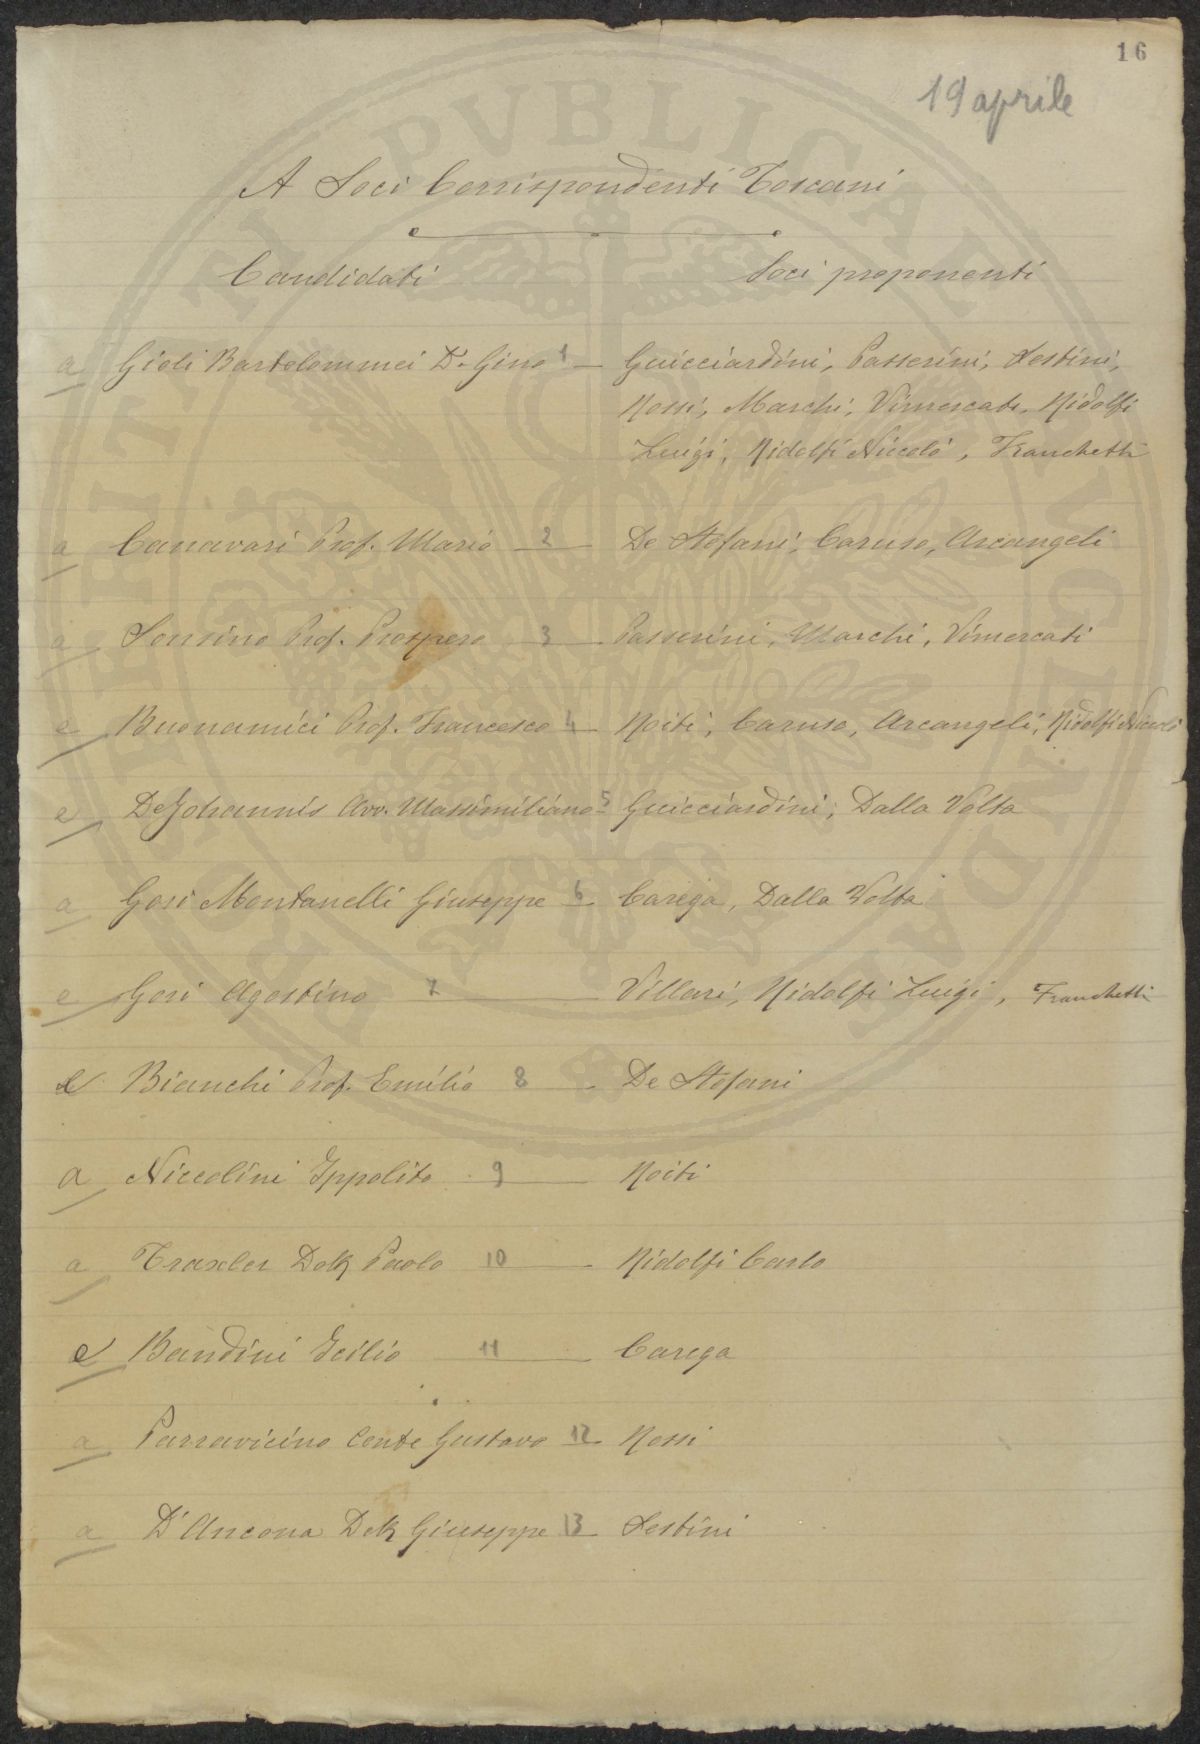 16
19 aprile
A Soci Corrispondenti Toscani
Candidati Soci proponenti
a Gioli Bartolommei D. Gino 1 — Guicciardini, Passerini, Sestini,
Rossi, Marchi, Vimercati, Ridolfi
Luigi, Ridolfi Niccolò, Franchetti
a Canavari Prof. Mario 2 — De Stefani, Caruso, Arcangeli
a Sonsino Prof. Prospero 3 — Passerini, Marchi, Vimercati
e Buonamici Prof. Francesco 4 — Roiti, Caruso, Arcangeli, Ridolfi Niccolò
e De Johannis Avv. Massimiliano 5 — Guicciardini, Dalla Volta
a Gosi Montanelli Giuseppe 6 — Carega, Dalla Volta
e Gori Agostino 7 — Villari, Ridolfi Luigi, Franchetti
e Bianchi Prof. Emilio 8 — De Stefani
a Niccolini Ippolito 9 — Roiti
a Traxler Dott Paolo 10 — Ridolfi Carlo
e Bandini Icilio 11 — Carega
a Parravicino Conte Gustavo 12 — Rossi
a D'Ancona Dott Giuseppe 13 — Sestini